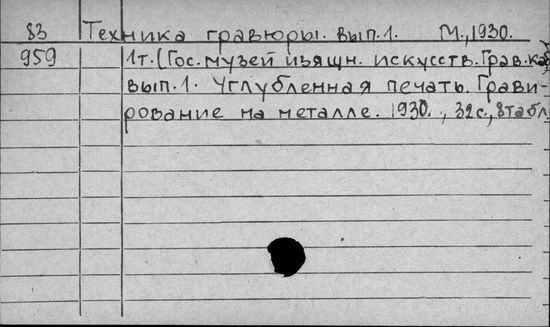 83 Техника гравюры. вып.1. М.,1930.
959 1т.(Гос.музей изящн. искусств.Грав.каб)
вып.1. Углубленная печать. Грави-
рование на металле. 1930., 32с.,8табл.